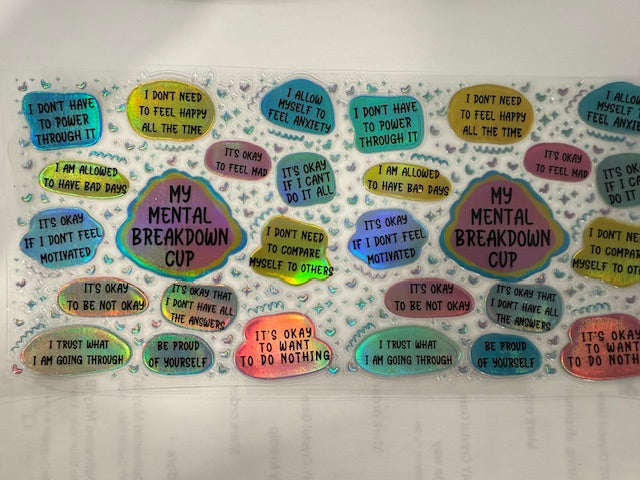 I DON'T HAVE
TO POWER
THROUGH IT
I DON'T NEED
TO FEEL HAPPY
ALL THE TIME
I ALLOW
MYSELF TO
FEEL ANXIETY
I AM ALLOWED
TO HAVE BAD DAYS
IT'S OKAY
TO FEEL MAD
IT'S OKAY
IF I CAN'T
DO IT ALL
IT'S OKAY
IF I DON'T FEEL
MOTIVATED
MY
MENTAL
BREAKDOWN
CUP
I DON'T NEED
TO COMPARE
MYSELF TO OTHERS
IT'S OKAY
TO BE NOT OKAY
IT'S OKAY THAT
I DON'T HAVE ALL
THE ANSWERS
I TRUST WHAT
I AM GOING THROUGH
BE PROUD
OF YOURSELF
IT'S OKAY
TO WANT
TO DO NOTHING
I DON'T HAVE
TO POWER
THROUGH IT
I DON'T NEED
TO FEEL HAPPY
ALL THE TIME
I ALLOW
MYSELF TO
FEEL ANXI
I AM ALLOWED
TO HAVE BAD DAYS
IT'S OKAY
TO FEEL MAD
IT'S OKAY
IF I CAN'T
DO IT ALL
IT'S OKAY
IF I DON'T FEEL
MOTIVATED
MY
MENTAL
BREAKDOWN
CUP
I DON'T NEED
TO COMPAR
MYSELF TO OT
IT'S OKAY
TO BE NOT OKAY
IT'S OKAY THAT
I DON'T HAVE ALL
THE ANSWERS
I TRUST WHAT
I AM GOING THROUGH
BE PROUD
OF YOURSELF
IT'S OKAY
TO WANT
TO DO NOTH